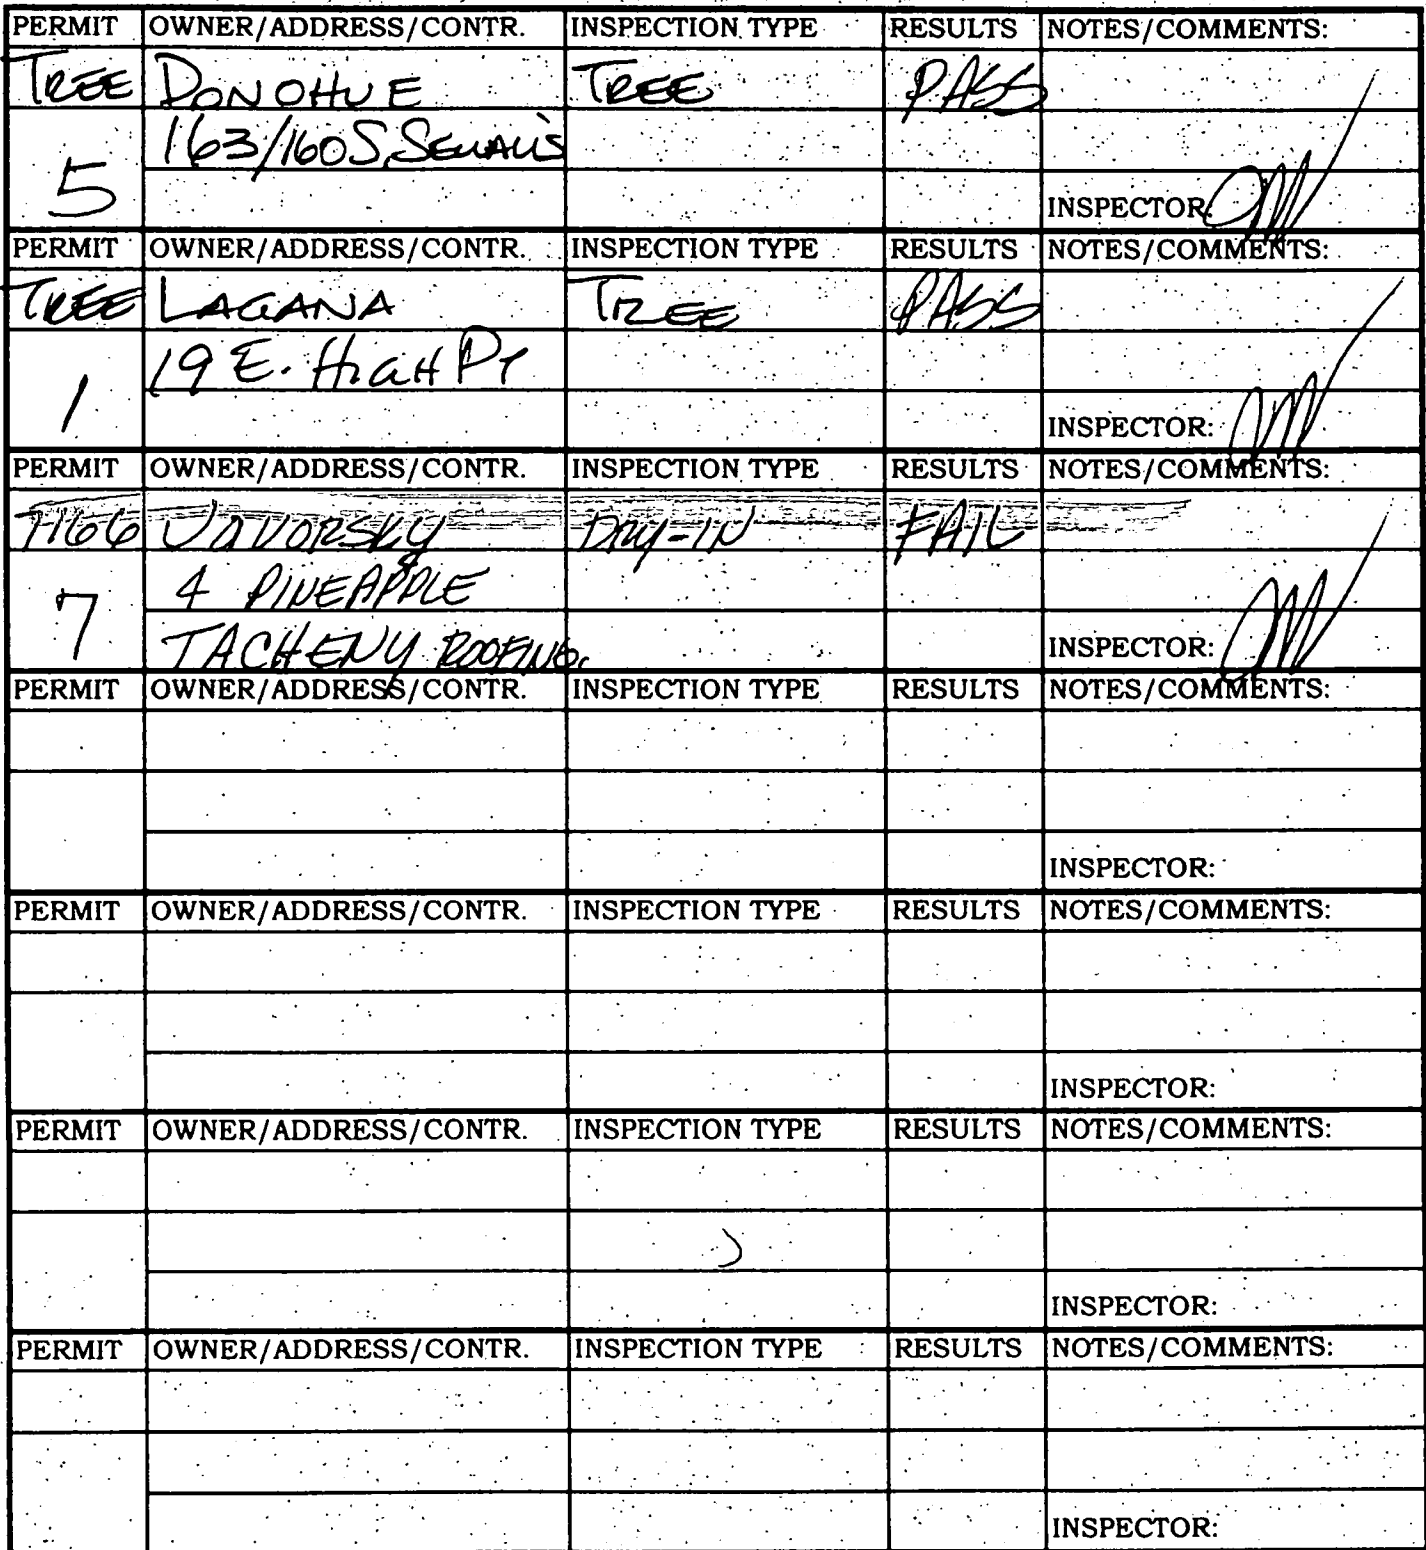 PERMIT OWNER/ADDRESS/CONTR. INSPECTION TYPE RESULTS NOTES/COMMENTS:
TREE DONOHUE TREE PASS
163/160 S. SEWALL'S
5
INSPECTOR:
PERMIT OWNER/ADDRESS/CONTR. INSPECTION TYPE RESULTS NOTES/COMMENTS:
TREE LAGANA TREE PASS
19 E. HIGH PT
1
INSPECTOR:
PERMIT OWNER/ADDRESS/CONTR. INSPECTION TYPE RESULTS NOTES/COMMENTS:
7166 JAVORSKY DRY-IN FAIL
4 PINEAPPLE
7
TACHENY ROOFING. INSPECTOR:
PERMIT OWNER/ADDRESS/CONTR. INSPECTION TYPE RESULTS NOTES/COMMENTS:
INSPECTOR:
PERMIT OWNER/ADDRESS/CONTR. INSPECTION TYPE RESULTS NOTES/COMMENTS:
INSPECTOR:
PERMIT OWNER/ADDRESS/CONTR. INSPECTION TYPE RESULTS NOTES/COMMENTS:
INSPECTOR:
PERMIT OWNER/ADDRESS/CONTR. INSPECTION TYPE RESULTS NOTES/COMMENTS:
INSPECTOR: